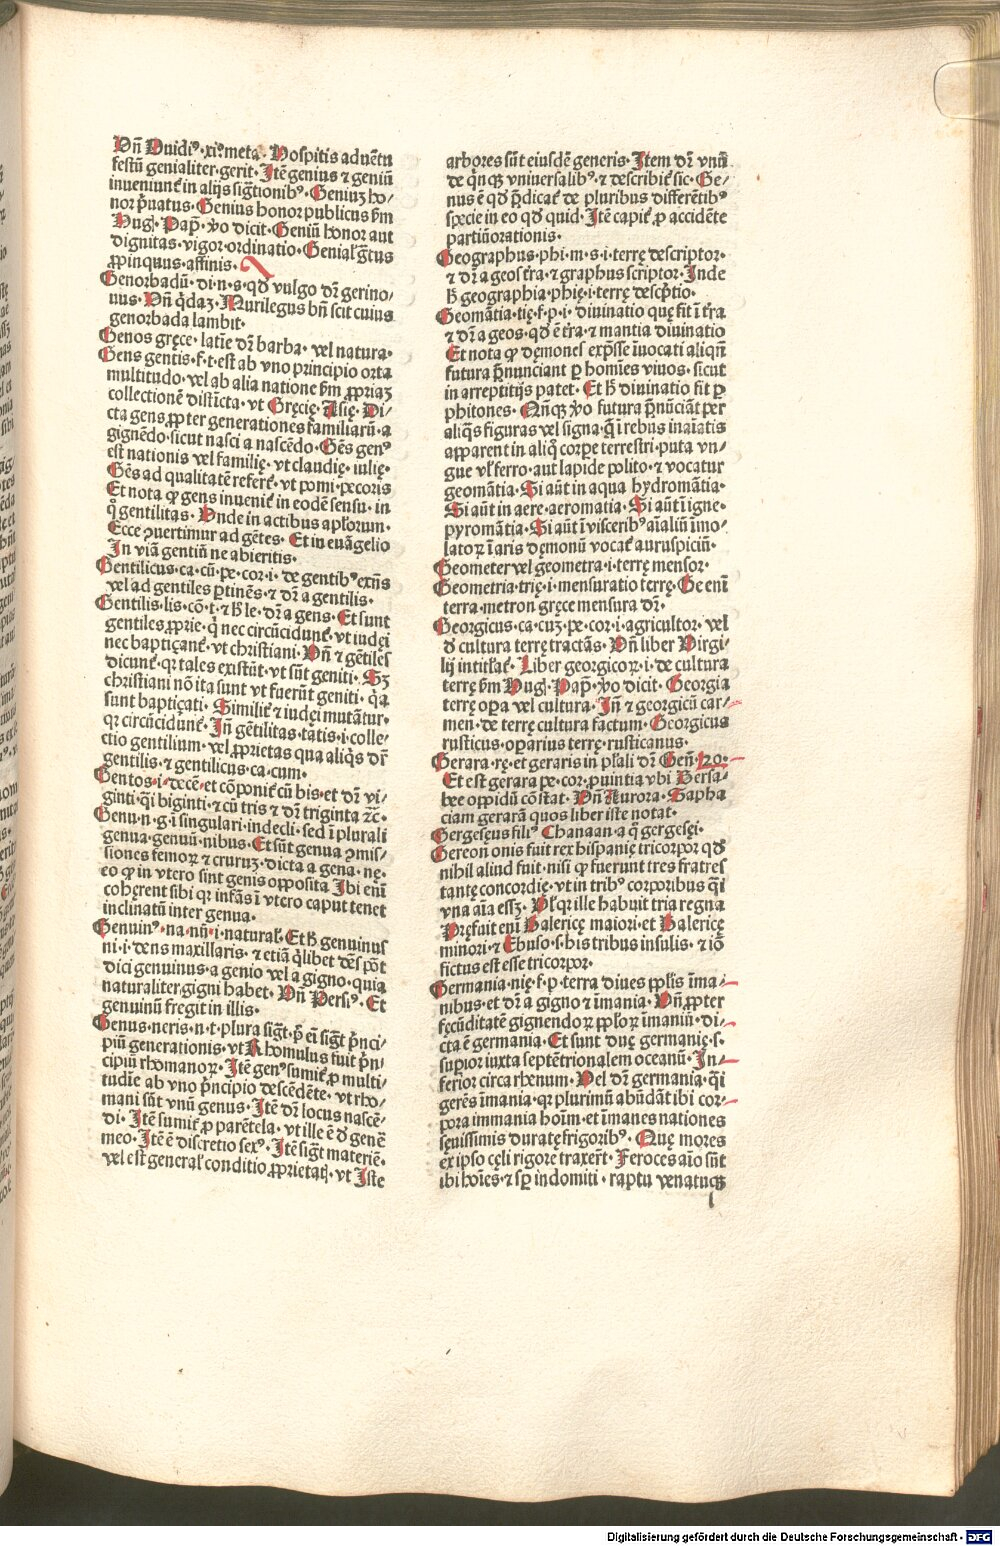 Vñ Ouidiꝰ·xi?meta·Hospitis aduẽtu
festũ genialiter·gerit·Itẽ genius ⁊ geniũ
inueniunt᷑ in alijs sigt̃ionibꝰ·Geniuʒ ho/
nor p̃uatus·Genius honor publicus ẜm
Hug᷑·Pap̃·ꝟo dicit·Geniũ honor aut
dignitas·vigor·ordinatio·Genial᷑ g̃tus
ꝓpinquus·affinis·
Genorbadũ·di·n·s·qď vulgo dr̃ gerino/
nus·Vñ q̃daʒ·Murilegus bñ scit cuius
genorbada lambit·
Genos gręce·latĩe dr̃ barba·vel natura·
Gens gentis·f·t·est ab vno principio orta
multitudo·vel ab alia natione ẜm ꝓpriaʒ
collectionẽ distĩcta·vt Gręcię·Asię·Di/
cta gens ꝓpter generationes familiarũ·a
gignẽdo·sicut nasci a nascẽdo·Gẽs genꝰ
est nationis vel familię·vt claudię·iulię·
Gẽs ad qualitatẽ refert᷑·vt pomi·pecoris
Et nota ꝙ gens inuenit᷑ in eodẽ sensu·in
q̊ gentilitas·Vnde in actibus apl̃orum·
Ecce ꝯuertimur ad gẽtes·Et in euãgelio
In viã gentiũ ne abieritis·
Gentilicus·ca·cũ·pe·cor·i·de gentibꝰ exñs
vel ad gentiles ꝑtinẽs·⁊ dr̃ a gentilis·
Gentilis·lis·cõ·t·⁊ ħ le·dr̃ a gens·Et sunt
gentiles ꝓprie·q̃ nec circũcidunt᷑·vt iudęi
nec baptiçant᷑·vt christiani·Vñ ⁊ gẽtiles
dicunt᷑·qꝛ tales existũt·vt sũt geniti·Sʒ
christiani nõ ita sunt vt fuerũt geniti·q̃a
sunt baptiçati·Similit᷑ ⁊ iudęi mutãtur·
qꝛ circũcidunt᷑·Iñ gẽtilitas·tatis·i·colle/
ctio gentilium·vel ꝓprietas qua aliq̃s dr̃
gentilis·⁊ gentilicus·ca·cum·
Gentos·i·decẽ·et cõponit᷑ cũ bis·et dr̃ vi/
ginti·q̃i biginti·⁊ cũ tris ⁊ dr̃ triginta ⁊c̃·
Genu·n·g·i singulari·indecli·sed ĩ plurali
genua·genuũ·nibus·Et sũt genua ꝯmis/
siones femoꝝ ⁊ cruruʒ·dicta a gena·ne·
eo ꝙ in vtero sint genis opposita Ibi enĩ
cohęrent sibi qꝛ infãs ĩ vtero caput tenet
inclinatũ inter genua·
Genuinꝰ·na·nũ·i·natural᷑·Et ħ genuinus
ni·i·dens maxillaris·⁊ etiã q̃libet dẽs põt
dici genuinus·a genio vel a gigno·quia
naturaliter gigni habet·Vñ Persiꝰ·Et
genuinũ fregit in illis·
Genus·neris·n·t·plura sigt̃·p̃ eĩ sigt̃ p̃nci·
piũ generationis·vt Rhomulus fuit p̃n·
cipiũ rhomanoꝝ·Itẽ genꝰ sumit᷑ ꝓ multi/
tudĩe ab vno p̃ncipio descẽdẽte·vt rho/
mani sũt vnũ genus·Itẽ dr̃ locus nascẽ·
di·Itẽ sumit᷑ ꝓ parẽtela·vt ille ẽ ď genẽ
meo·Itẽ ẽ discretio sexꝰ·Itẽ sigt̃ materiẽ·
vel est general᷑ conditio ꝓprietatꝭ·vt Iste
arbores sũt eiusdẽ generis·Item dr̃ vnũ
de q̃nqʒ vniuersalibꝰ·⁊ describit᷑ sic·Ge/
nus ẽ qď p̃dicat᷑ de pluribus differẽtibꝰ
specie in eo qď quid·Itẽ capit᷑ ꝓ accidẽte
partiũ orationis·
Geographus·phi·m·s·i·terrę descriptor·
⁊ dr̃ a geos t̃ra·⁊ graphus scriptor·Inde
ħ geographia·phię·i·terrę descp̃tio·
Geomãtia·tię·f·p·i·diuinatio quę fit ĩ t̃ra
⁊ dr̃ a geos·qď ẽ t̃ra·⁊ mantia diuinatio
Et nota ꝙ dęmones exp̃sse ĩuocati aliqñ
futura p̃nunciant ꝑ homĩes viuos·sicut
in arreptitijs patet·Et ħ diuinatio fit ꝑ
phitones·Qñqʒ ꝟo futura p̃nũciãt per
aliq̃s figuras vel signa·q̃ ĩ rebus inaĩatis
apparent in aliq̃ corpe terrestri·puta vn/
gue vl᷑ ferro·aut lapide polito·⁊ vocatur
geomãtia·Si aũt in aqua hydromãtia·
Si aũt in aere·aeromatia·Si aũt ĩ igne·
pyromãtia·Si aũt ĩ visceribꝰ aĩaliũ ĩmo/
latoꝝ ĩ aris dęmonũ vocat᷑ auruspiciũ·
Geometer vel geometra·i·terrę mensor·
Geometria·trię·i·mensuratio terrę·Ge enĩ
terra·metron gręce mensura dr̃·
Georgicus·ca·cuʒ·pe·cor·i·agricultor·vel
ď cultura terrę tractãs·Vñ liber Virgi/
lij intitlat᷑·Liber georgicoꝝ·i·de cultura
terrę ẜm Hug᷑·Pap̃·ꝟo dicit·Georgia
terrę oꝑa vel cultura·Iñ ⁊ georgicũ car/
men·de terrę cultura factum·Georgicus
rusticus·oꝑarius terrę·rusticanus·
Gerara·rę·et geraris in pl̃ali dr̃ Geñ·20·
Et est gerara pe·cor·ꝓuintia vbi Bersa/
bee oppidũ cõstat·Vñ Aurora·Sapha
ciam gerarã quos liber iste notat·
Gergesęus filiꝰ Chanaan·a q̊ gergesęi·
Gereon onis fuit rex hispanię tricorpor qď
nihil aliud fuit·nisi ꝙ fuerunt tres fratres
tantę concordię·vt in tribꝰ corporibus q̃i
vna aĩa esſʒ·Vl᷑ qꝛ ille habuit tria regna
Pręfait enĩ Balericę maiori·et Balericę
minori·⁊ Ebuso·s·his tribus insulis·⁊ iõ
fictus est esse tricorpor·
Germania·nię·f·p·terra diues ppl̃is ĩma/
nibus·et dr̃ a gigno ⁊ ĩmania·Vñ ꝓpter
fęcũditatẽ gignendoꝝ ppl̃oꝝ ĩmaniũ·di/
cta ẽ germania·Et sunt duę germanię·s·
suꝑior iuxta septẽtrionalem oceanũ·In/
ferior circa rhenum·Vel dr̃ germania·q̃i
gerẽs ĩmania·qꝛ plurimũ abũdãt ibi cor/
pora immania hoĩm·et ĩmanes nationes
sęuissimis duratę frigoribꝰ·Quę mores
ex ipso cęli rigore traxer̃t·Feroces aĩo sũt
ibi hoĩes·⁊ sꝑ indomiti·raptu venatuqʒ
l
Digitalisierung gefördert durch die Deutsche Forschungsgemeinschaft · DFG